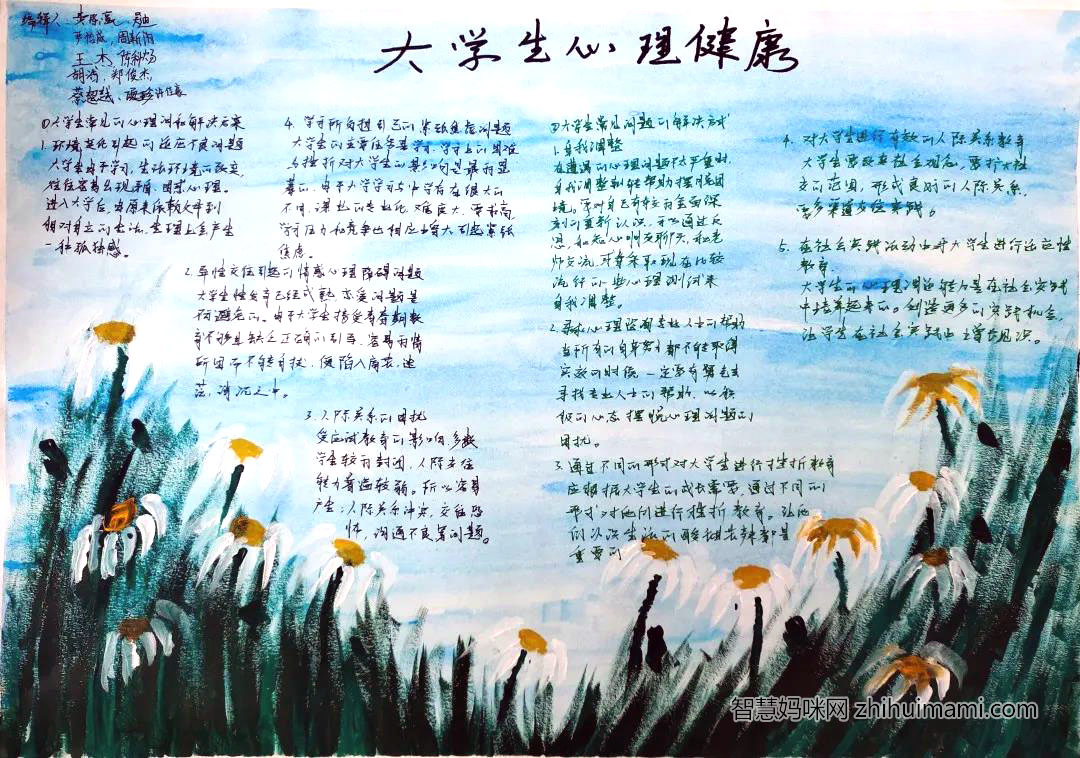 大学生心理健康
编辑人
王杰
①大学生常见的心理问题和解决方案
1. 环境变化引起的适应不良问题
大学生由于学习,生活环境的改变,
往往容易出现矛盾,困惑心理。
进入大学后,由原来依赖父母到
相对自立的生活,生理上会产生
一种孤独感。
2. 异性交往引起的情感心理障碍问题
大学生性发育已经成熟,恋爱问题是
回避免的。由于大学生接受青春期教
育不够且缺乏正确的引导,容易因情
所困而不能自拔,便陷入痛苦、迷
茫、消沉之中。
3. 人际关系的困扰
受应试教育的影响,多数
学生较为封闭,人际交往
能力普遍较弱。所以容易
产生:人际关系冲突,交往恐
怖,沟通不良等问题。
4. 学习
大学生的主要任务是学习,学习上的困难
与挫折对大学生的影响是最为显
著的。由于大学学习与中学存在很大的
不同,课业的专业化,难度大,要求高,
学习压力和竞争也相应增大引起紧张
焦虑。
②大学生常见问题的解决方式
1. 自我调整
在遭遇的心理问题不太严重时,
自我调整到能帮助摆脱困
境,要对自己有较为全面深
刻的重新认识,可以通过反
思,和知心朋友聊天,和老
师交流,或者采取现在比较
流行的一些心理测试来
自我调整。
2. 寻求心理咨询专业人士的帮助
当所有的自身努力都不能取得
实效的时候,一定要有勇气去
寻找专业人士的帮助,以积
极的心态摆脱心理问题的
困扰。
3. 通过不同的形式对大学生进行挫折教育
应根据大学生的成长需要,通过不同的
形式对他们进行挫折教育。让他
们认识生活的酸甜苦辣都是
重要的
4. 对大学生进行有效的人际关系教育
大学生要改变社会观念,要扩大社
交的范围,形成良好的人际关系,
要多渠道交往实践。
5. 在社会实践活动中对大学生进行适应性
教育
大学生的心理调适能力是在社会实践
中培养起来的。创造更多的实践机会,
让学生在社会实践中增长见识。
智慧妈咪网 zhihuimami.com